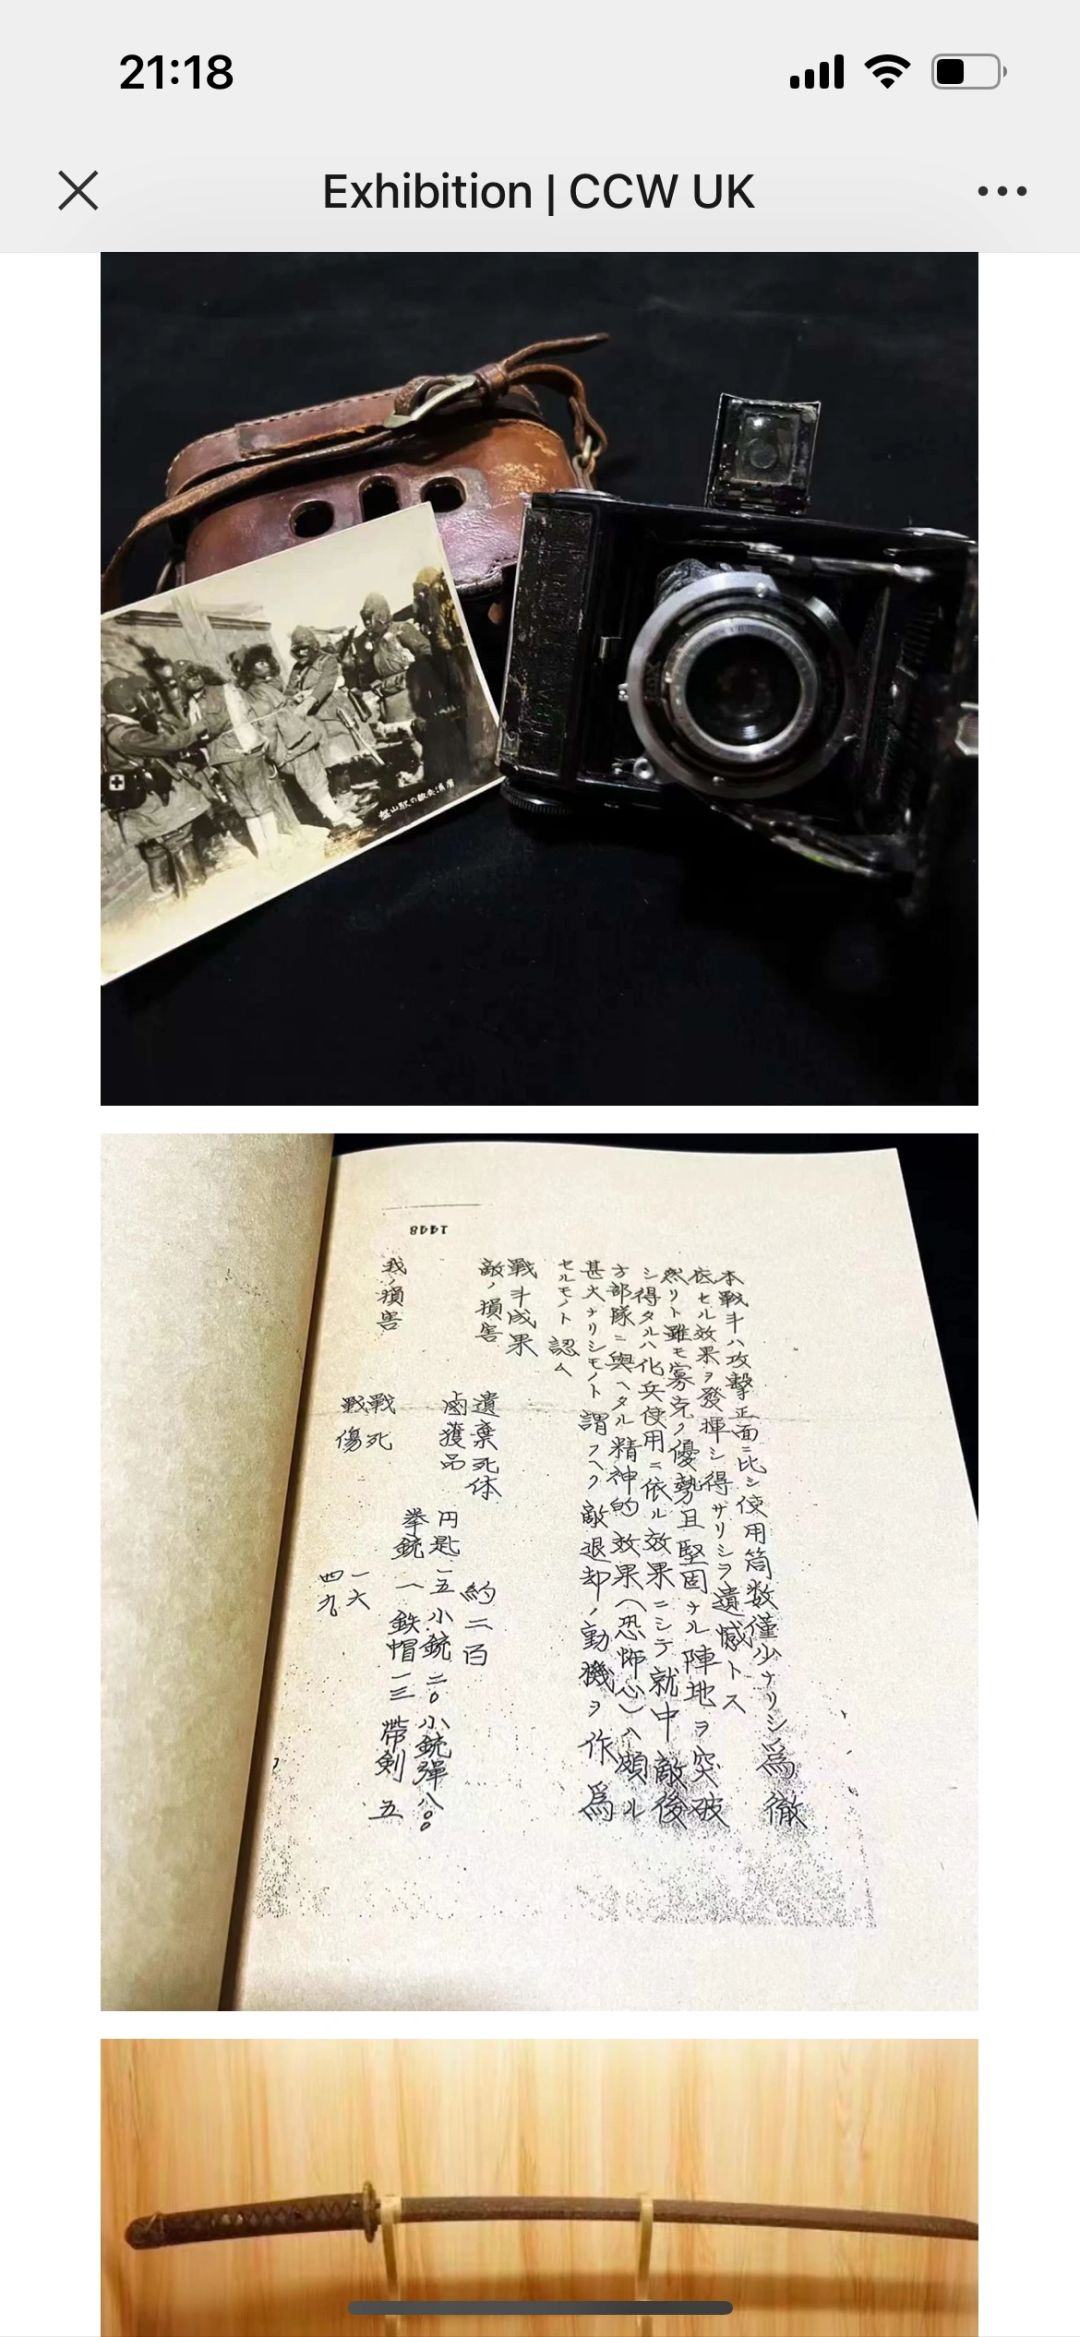 21:18
Exhibition | CCW UK
盤山駅の敵兵清房
1448
本戰斗ハ攻撃正面ニ比シ使用筒数僅少ナリシ為徹
底セル效果ヲ發揮シ得サリシヲ遺憾トス
然リト雖モ寡克ク優勢且堅固ナル陣地ヲ突破
シ得タルハ化兵使用ニ依ル效果ニシテ就中敵後
方部隊ニ與ヘタル精神的效果(恐怖心)ハ頗ル
甚大ナリシモノト謂フヘク敵退却ノ動機ヲ作為
セルモノト認ム
戰斗成果
敵ノ損害
遺棄死体 約二百
鹵獲品 円匙一五 小銃二〇 小銃彈八〇〇
拳銃一 鉄帽一三 帶剣五
我ノ損害
戰死 一六
戰傷 四九